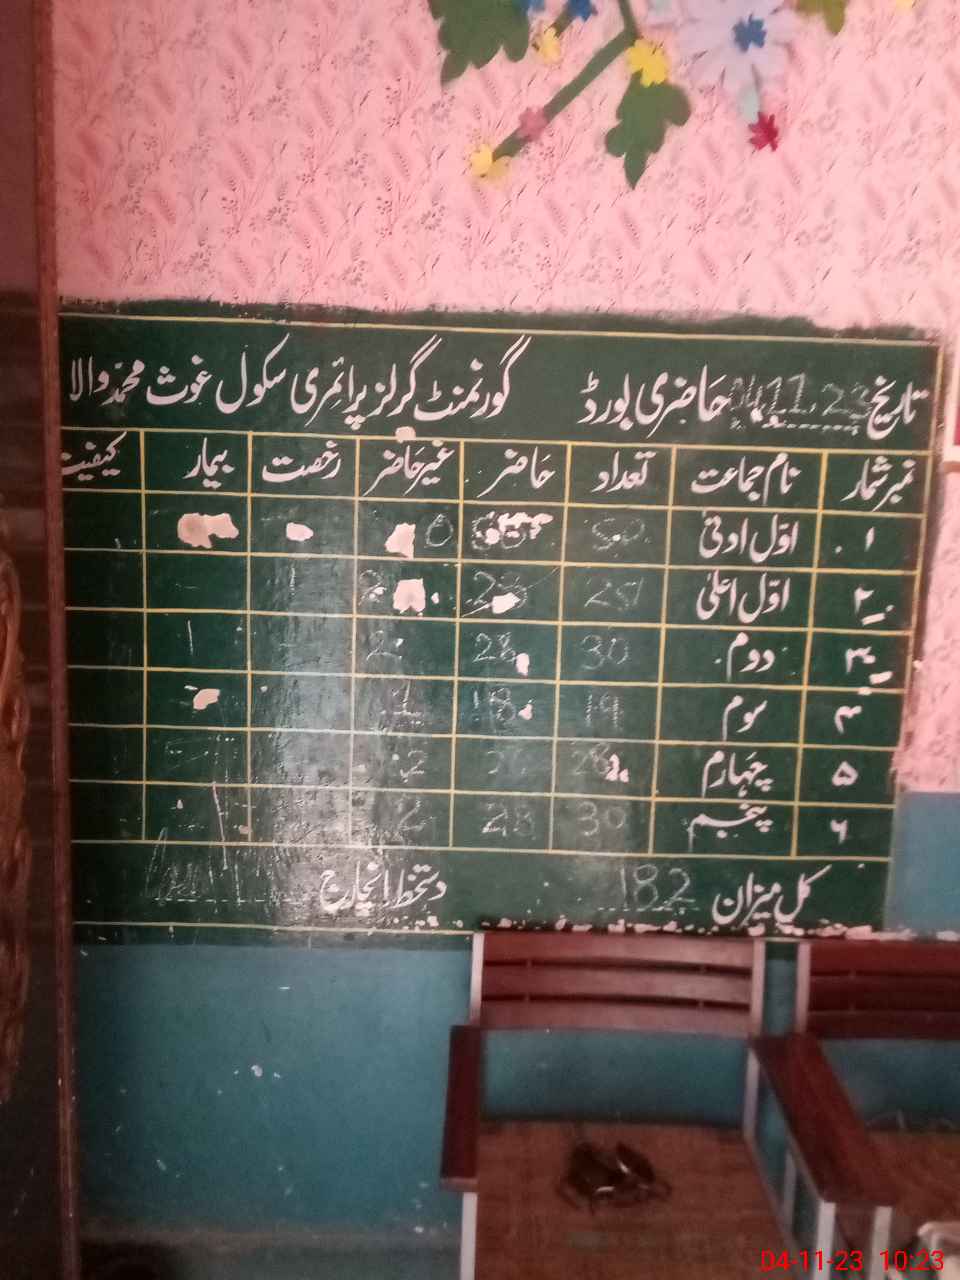 تاریخ 04.11.23 حاضری بورڈ گورنمنٹ گرلز پرائمری سکول غوث محمد والا
نمبر شمار نام جماعت تعداد حاضر غیر حاضر رخصت بیمار کیفیت
۱ اوّل ادنیٰ 50 0
۲ اوّل اعلیٰ 25 2
۳ دوم 30 28 2
۴ سوم 19 18 1
۵ چہارم 28 2
۶ پنجم 30 28 2
کل میزان 182 دستخط انچارج
04-11-23 10:23